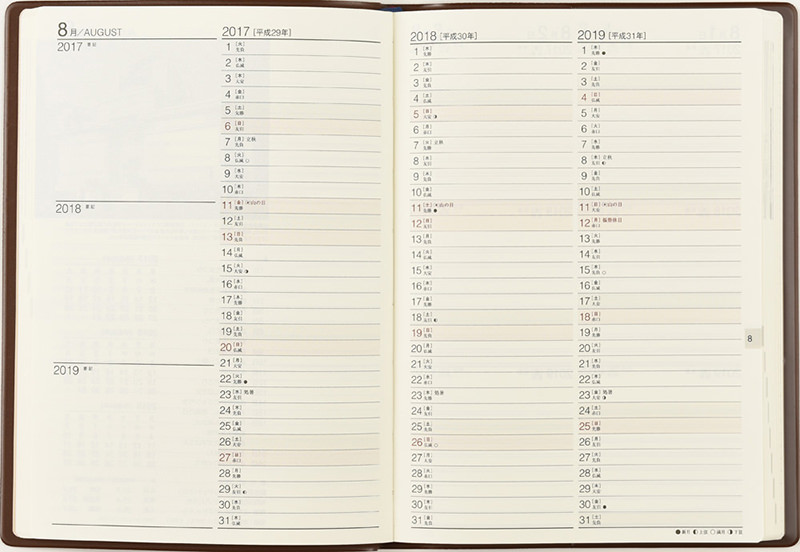 8月/AUGUST
2017 筆記
2018 筆記
2019 筆記
2017 [平成29年]
1 [火] 先負
2 [水] 仏滅
3 [木] 大安
4 [金] 赤口
5 [土] 先勝
6 [日] 友引
7 [月] 立秋 先負
8 [火] 仏滅 ○
9 [水] 大安
10 [木] 赤口
11 [金] ㊗山の日 先勝
12 [土] 友引
13 [日] 先負
14 [月] 仏滅
15 [火] 大安 ◑
16 [水] 赤口
17 [木] 先勝
18 [金] 友引
19 [土] 先負
20 [日] 仏滅
21 [月] 大安
22 [火] 先勝 ●
23 [水] 処暑 友引
24 [木] 先負
25 [金] 仏滅
26 [土] 大安
27 [日] 赤口
28 [月] 先勝
29 [火] 友引 ◐
30 [水] 先負
31 [木] 仏滅
2018 [平成30年]
1 [水] 先勝
2 [木] 友引
3 [金] 先負
4 [土] 仏滅
5 [日] 大安 ◑
6 [月] 赤口
7 [火] 立秋 先勝
8 [水] 友引
9 [木] 先負
10 [金] 仏滅
11 [土] ㊗山の日 先勝 ●
12 [日] 友引
13 [月] 先負
14 [火] 仏滅
15 [水] 大安
16 [木] 赤口
17 [金] 先勝
18 [土] 友引 ◐
19 [日] 先負
20 [月] 仏滅
21 [火] 大安
22 [水] 赤口
23 [木] 処暑 先勝
24 [金] 友引
25 [土] 先負
26 [日] 仏滅 ○
27 [月] 大安
28 [火] 赤口
29 [水] 先勝
30 [木] 友引
31 [金] 先負
2019 [平成31年]
1 [木] 先勝 ●
2 [金] 友引
3 [土] 先負
4 [日] 仏滅
5 [月] 大安
6 [火] 赤口
7 [水] 先勝
8 [木] 立秋 友引 ◐
9 [金] 先負
10 [土] 仏滅
11 [日] ㊗山の日 大安
12 [月] 振替休日 赤口
13 [火] 先勝
14 [水] 友引
15 [木] 先負 ○
16 [金] 仏滅
17 [土] 大安
18 [日] 赤口
19 [月] 先勝
20 [火] 友引
21 [水] 先負
22 [木] 仏滅
23 [金] 処暑 大安 ◑
24 [土] 赤口
25 [日] 先勝
26 [月] 友引
27 [火] 先負
28 [水] 仏滅
29 [木] 大安
30 [金] 友引 ●
31 [土] 先負
8
●新月 ◐上弦 ○満月 ◑下弦